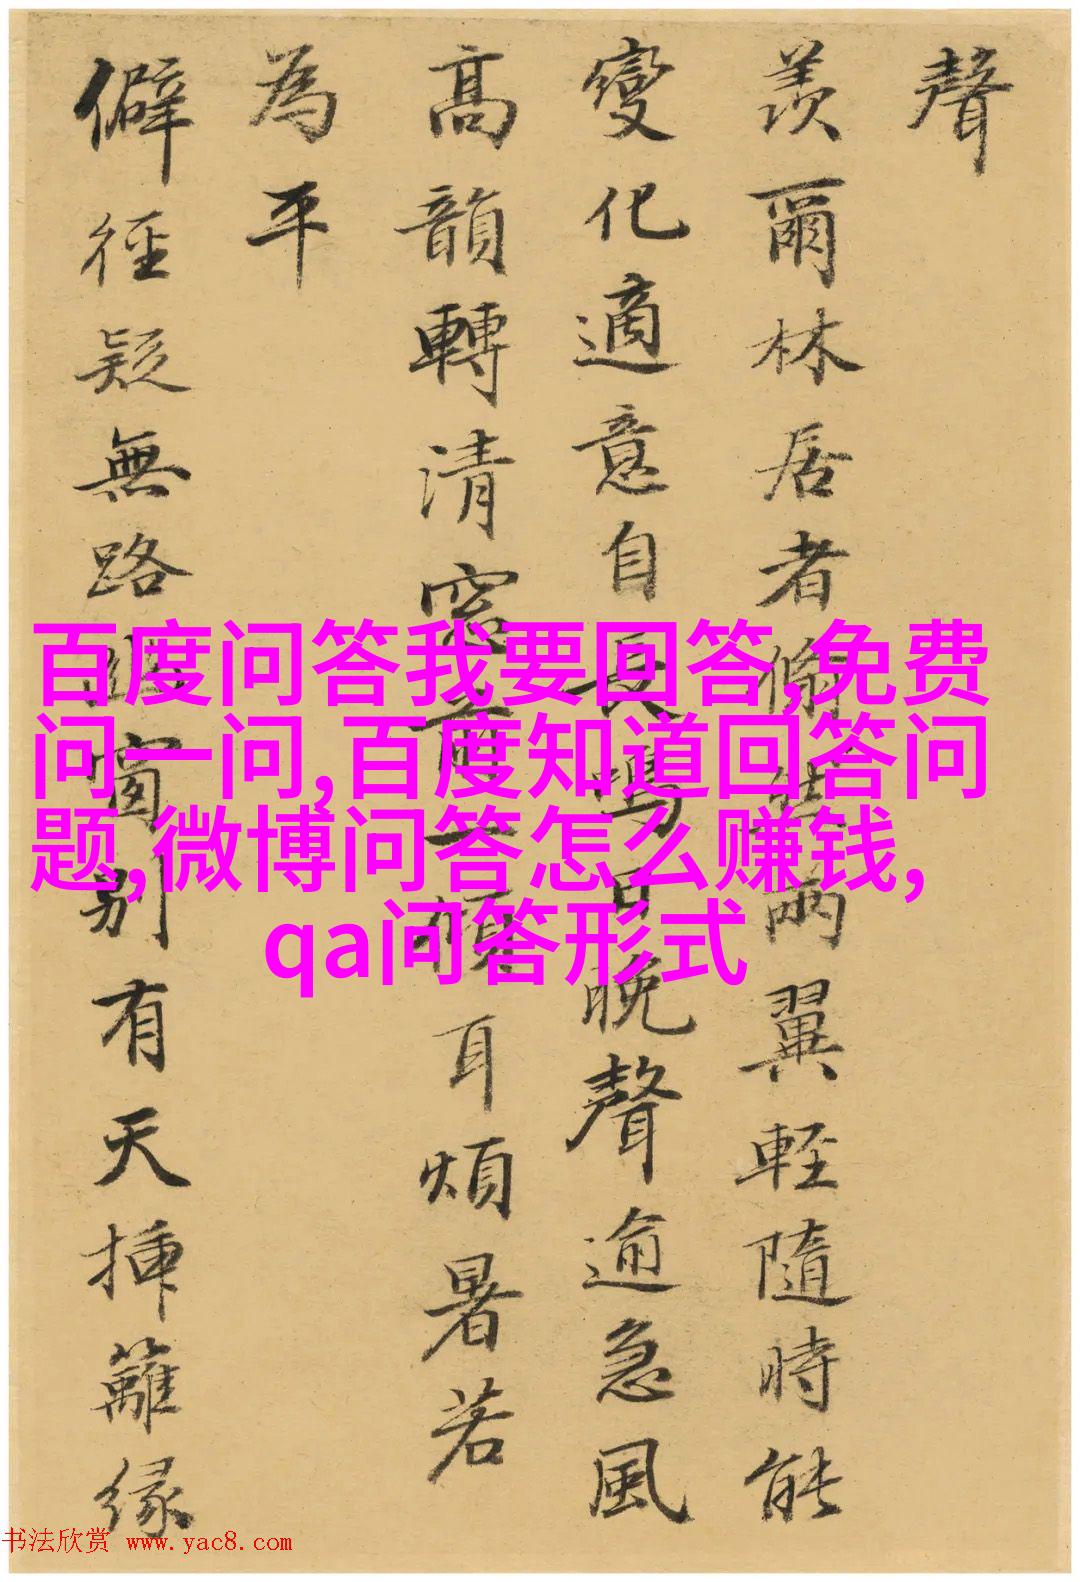 聲
羨爾林居者兩翼輕隨時能
變化適意自長鳴日晚聲逾急風
高韻轉清窓前一傾耳煩暑若
為平
僻徑疑無路幽窗別有天揷籬緣
百度问答我要回答,免费
问一问,百度知道回答问
题,微博问答怎么赚钱,
qa问答形式
书法欣赏 www.yac8.com